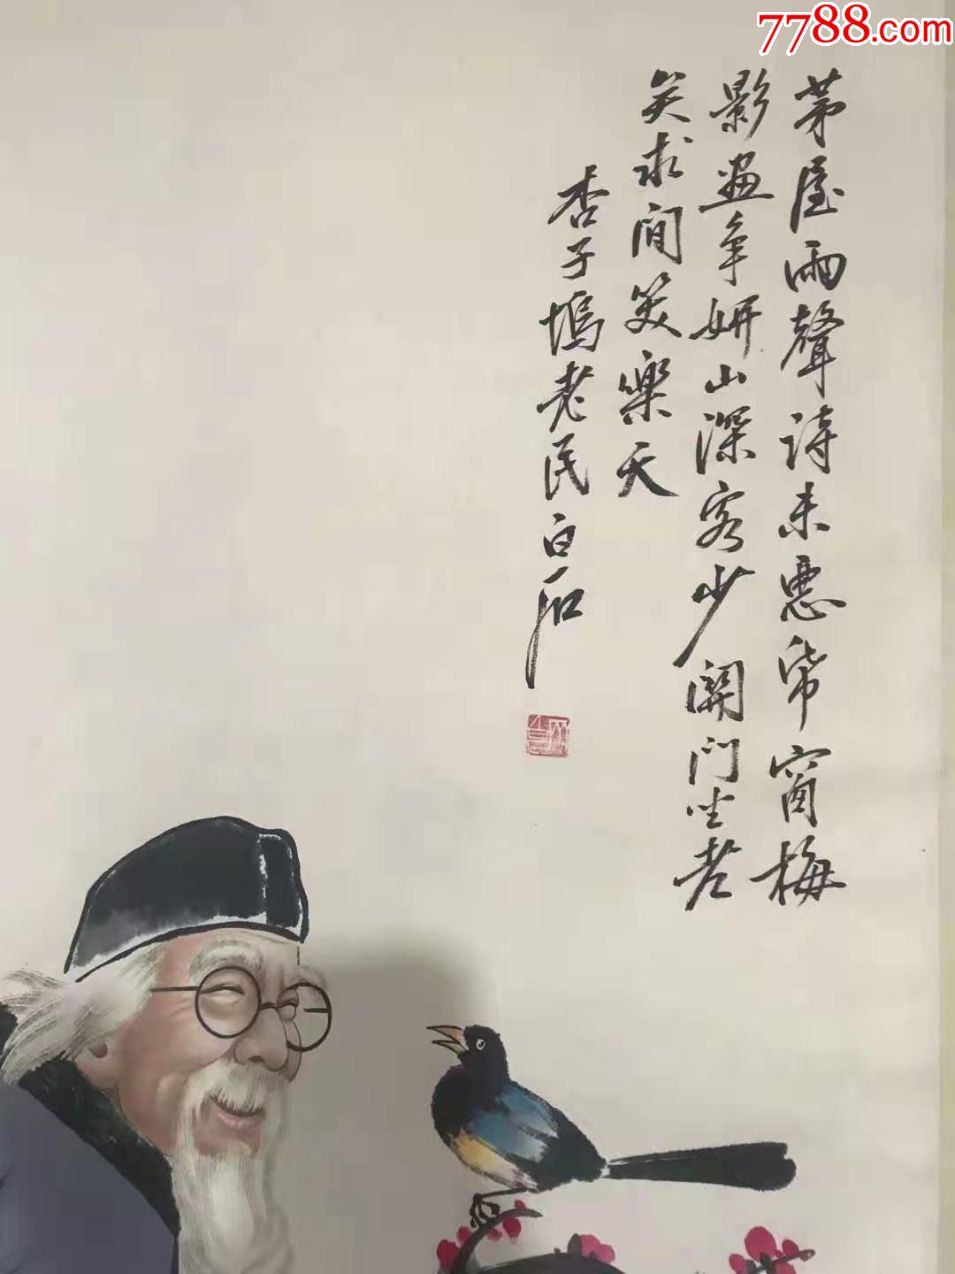 7788.com
茅屋雨聲诗未悪帋窗梅
影畫争妍山深客少関门坐老
矣求閒笑樂天
杏子塢老民白石